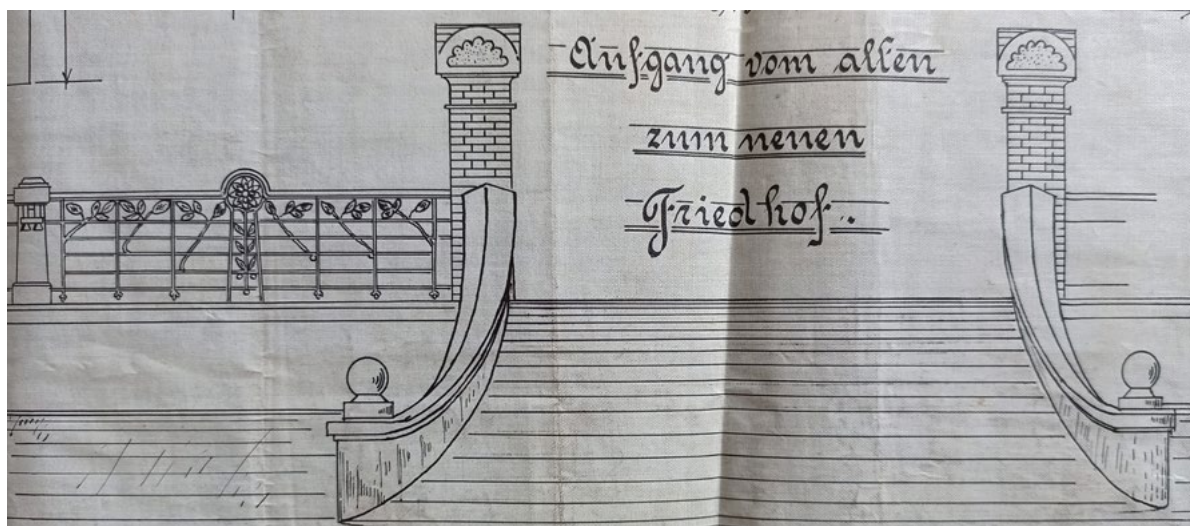 Aufgang vom alten
zum neuen
Friedhof.